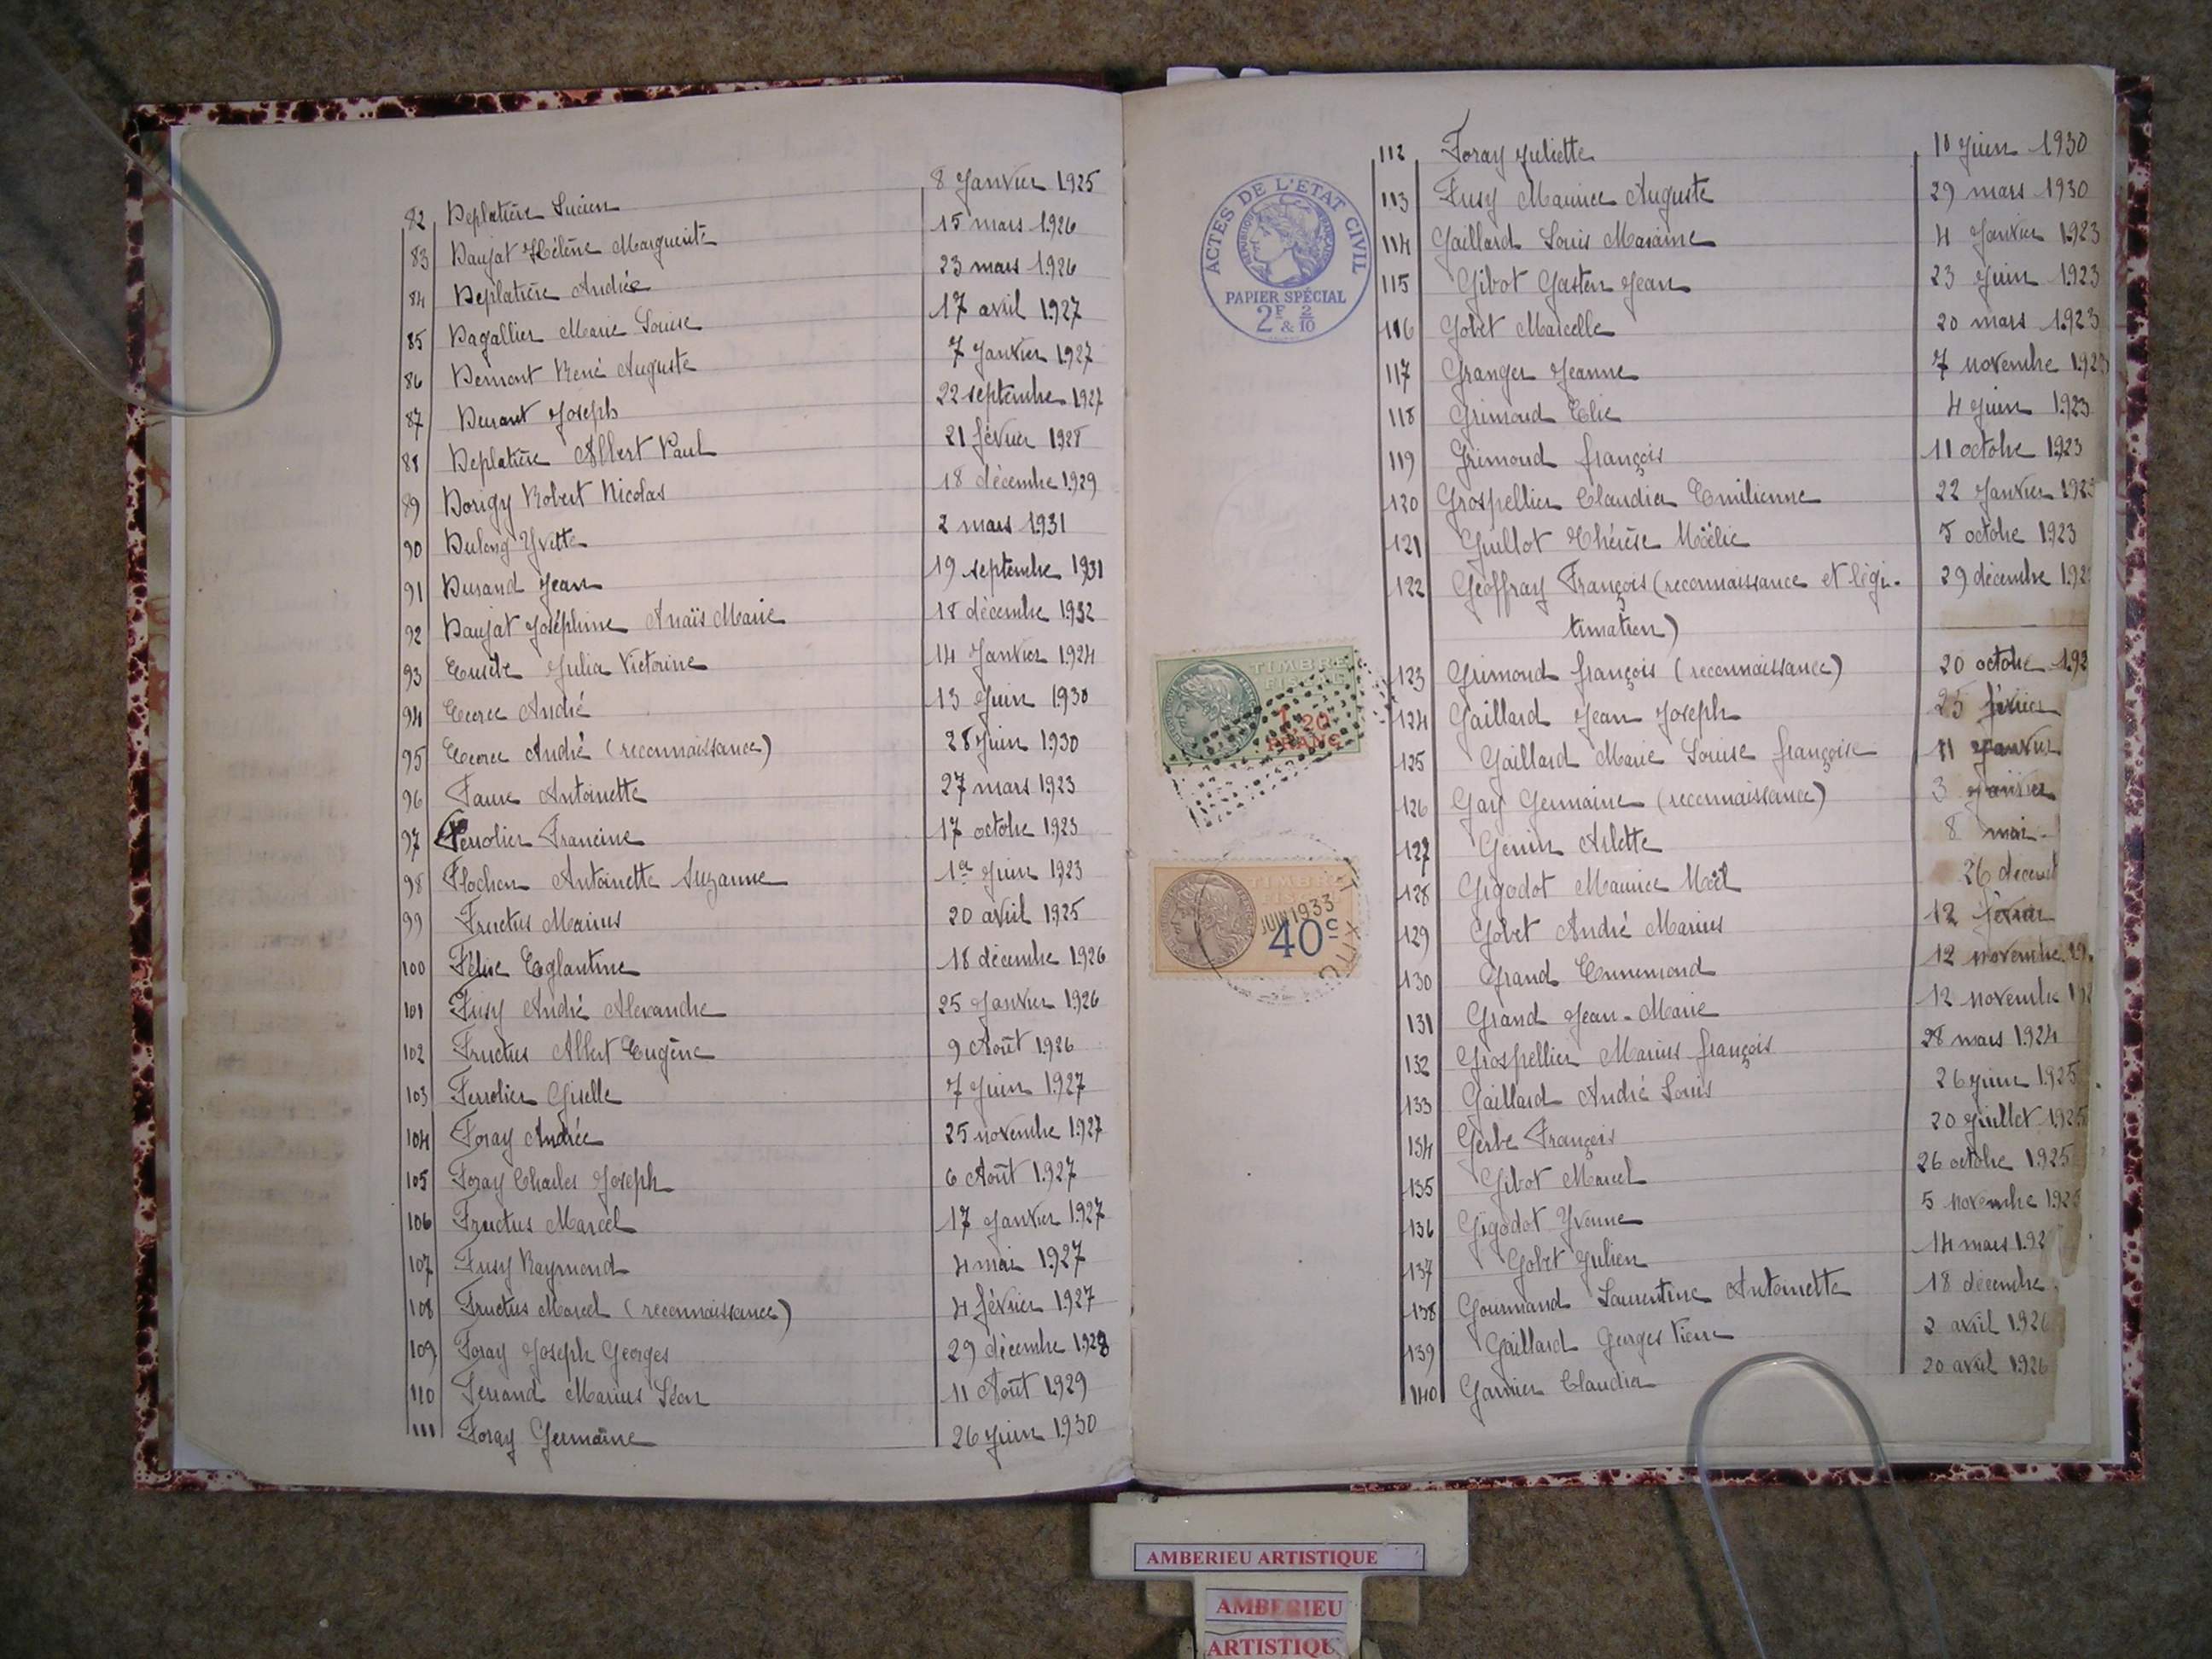 82 Deplatière Lucien 8 Janvier 1925
83 Daujat Hélène Marguerite 15 mars 1926
84 Deplatière Andrée 23 mars 1926
85 Dagallier Marie Louise 17 avril 1927
86 Demont René Auguste 7 Janvier 1927
87 Durant Joseph 22 septembre 1927
88 Deplatière Albert Paul 21 février 1928
89 Dorigy Robert Nicolas 18 décembre 1929
90 Dulong Yvette 2 mars 1931
91 Durand Jean 19 septembre 1931
92 Daujat Joséphine Anaïs Marie 18 décembre 1932
93 Eusèbe Julia Victorine 14 Janvier 1924
94 André 13 Juin 1930
95 André (reconnaissance) 28 Juin 1930
96 Faure Antoinette 27 mars 1923
97 Ferrolier Francine 17 octobre 1923
98 Flochon Antoinette Suzanne 1er Juin 1923
99 Fructus Marius 20 avril 1925
100 Félise Eglantine 18 décembre 1926
101 Fusy André Alexandre 25 Janvier 1926
102 Fructus Albert Eugène 9 Août 1926
103 Ferrolier Giselle 7 Juin 1927
104 Foray Andrée 25 novembre 1927
105 Foray Charles Joseph 6 Août 1927
106 Fructus Marcel 17 Janvier 1927
107 Fusy Raymond 4 mai 1927
108 Fructus Marcel (reconnaissance) 4 février 1927
109 Foray Joseph Georges 29 décembre 1928
110 Ferrand Marius Léon 11 Août 1929
111 Foray Germaine 26 Juin 1930
112 Foray Juliette 10 Juin 1930
113 Fusy Maurice Auguste 29 mars 1930
114 Gaillard Louis Maxime 4 Janvier 1923
115 Gibot Gaston Jean 23 Juin 1923
116 Gobet Marcelle 20 mars 1923
117 Granger Jeanne 7 novembre 1923
118 Grimoud Elie 4 Juin 1923
119 Grimoud françois 11 octobre 1923
120 Grospellier Claudia Emilienne 22 Janvier 1923
121 Guillot Thérèse Noëlie 5 octobre 1923
122 Geoffray François (reconnaissance et légi- 29 décembre 192
timation)
123 Grimoud françois (reconnaissance) 20 octobre 192
124 Gaillard Jean Joseph 25 février
125 Gaillard Marie Louise françoise 11 Janvier
126 Gay Germaine (reconnaissance) 3 Janvier
127 Genin Arlette 8 mai
128 Gigodot Maurice Noël 26 décemb
129 Gobet André Marius 12 février
130 Grand Ennemond 12 novembre 19
131 Grand Jean-Marie 12 novembre 192
132 Grospellier Marius françois 28 mars 1924
133 Gaillard André Louis 26 Juin 1925
134 Gerbe François 20 Juillet 1925
135 Gibot Marcel 26 octobre 1925
136 Gigodot Yvonne 5 novembre 1925
137 Gobet Julien 14 mars 192
138 Gourmand Laurentine Antoinette 18 décembre
139 Gaillard Georges Pierre 2 avril 1926
140 Garnier Claudia 20 avril 1926
ACTES DE L'ETAT CIVIL
REPUBLIQUE FRANÇAISE
PAPIER SPÉCIAL
2F & 2/10
TIMBRE
FISCAL
1.20
FRANC
TIMBRE
FISCAL
JUIN 1933
40c
AMBERIEU ARTISTIQUE
AMBERIEU
ARTISTIQUE